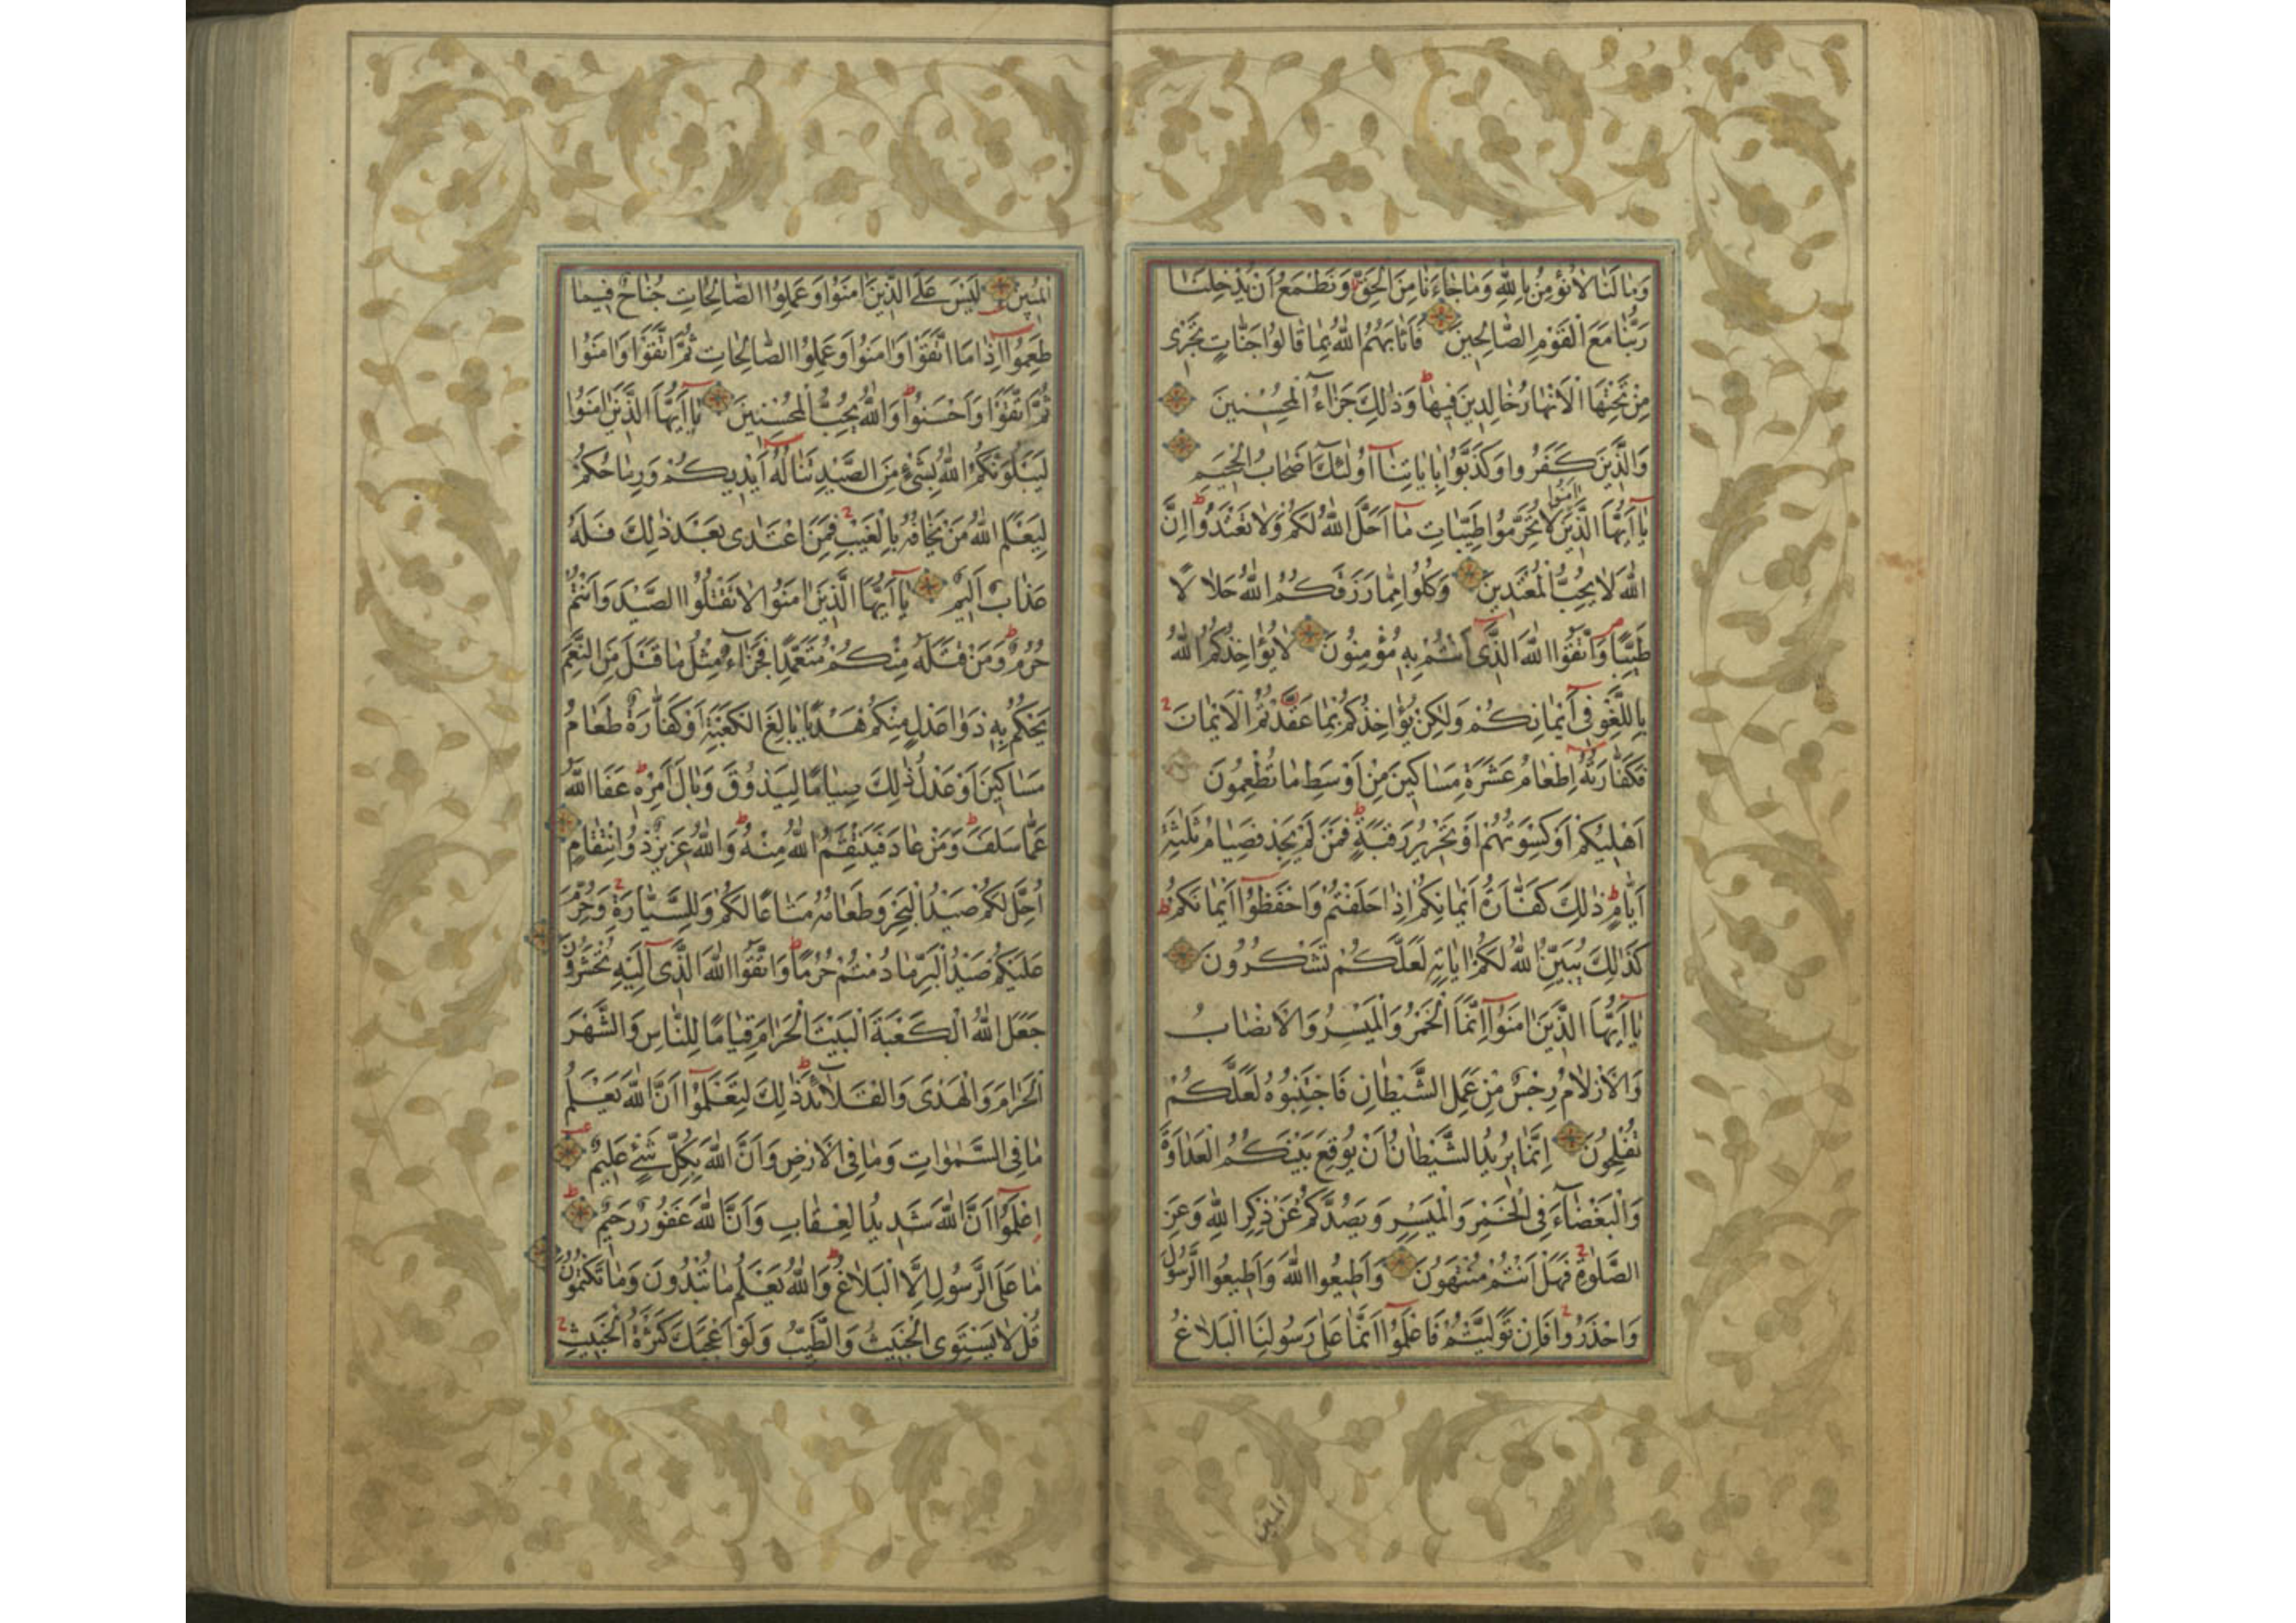 وَمَا لَنَا لَا نُؤْمِنُ بِاللهِ وَمَا جَاءَنَا مِنَ الْحَقِّ وَنَطْمَعُ اَنْ يُدْخِلَنَا
رَبُّنَا مَعَ الْقَوْمِ الصَّالِحِينَ فَاَثَابَهُمُ اللهُ بِمَا قَالُوا جَنَّاتٍ تَجْرِى
مِنْ تَحْتِهَا الْاَنْهَارُ خَالِدِينَ فِيهَا وَذٰلِكَ جَزَاءُ الْمُحْسِنِينَ
وَالَّذِينَ كَفَرُوا وَكَذَّبُوا بِاٰيَاتِنَا اُولٰئِكَ اَصْحَابُ الْجَحِيمِ
يَا اَيُّهَا الَّذِينَ اٰمَنُوا لَا تُحَرِّمُوا طَيِّبَاتِ مَا اَحَلَّ اللهُ لَكُمْ وَلَا تَعْتَدُوا اِنَّ
اللهَ لَا يُحِبُّ الْمُعْتَدِينَ وَكُلُوا مِمَّا رَزَقَكُمُ اللهُ حَلَالًا
طَيِّبًا وَاتَّقُوا اللهَ الَّذِى اَنْتُمْ بِهِ مُؤْمِنُونَ لَا يُؤَاخِذُكُمُ اللهُ
بِاللَّغْوِ فِى اَيْمَانِكُمْ وَلٰكِنْ يُؤَاخِذُكُمْ بِمَا عَقَّدْتُمُ الْاَيْمَانَ
فَكَفَّارَتُهُ اِطْعَامُ عَشَرَةِ مَسَاكِينَ مِنْ اَوْسَطِ مَا تُطْعِمُونَ
اَهْلِيكُمْ اَوْ كِسْوَتُهُمْ اَوْ تَحْرِيرُ رَقَبَةٍ فَمَنْ لَمْ يَجِدْ فَصِيَامُ ثَلٰثَةِ
اَيَّامٍ ذٰلِكَ كَفَّارَةُ اَيْمَانِكُمْ اِذَا حَلَفْتُمْ وَاحْفَظُوا اَيْمَانَكُمْ
كَذٰلِكَ يُبَيِّنُ اللهُ لَكُمْ اٰيَاتِهِ لَعَلَّكُمْ تَشْكُرُونَ
يَا اَيُّهَا الَّذِينَ اٰمَنُوا اِنَّمَا الْخَمْرُ وَالْمَيْسِرُ وَالْاَنْصَابُ
وَالْاَزْلَامُ رِجْسٌ مِنْ عَمَلِ الشَّيْطَانِ فَاجْتَنِبُوهُ لَعَلَّكُمْ
تُفْلِحُونَ اِنَّمَا يُرِيدُ الشَّيْطَانُ اَنْ يُوقِعَ بَيْنَكُمُ الْعَدَاوَةَ
وَالْبَغْضَاءَ فِى الْخَمْرِ وَالْمَيْسِرِ وَيَصُدَّكُمْ عَنْ ذِكْرِ اللهِ وَعَنِ
الصَّلٰوةِ فَهَلْ اَنْتُمْ مُنْتَهُونَ وَاَطِيعُوا اللهَ وَاَطِيعُوا الرَّسُولَ
وَاحْذَرُوا فَاِنْ تَوَلَّيْتُمْ فَاعْلَمُوا اَنَّمَا عَلٰى رَسُولِنَا الْبَلَاغُ
المبين
الْمُبِينُ لَيْسَ عَلَى الَّذِينَ اٰمَنُوا وَعَمِلُوا الصَّالِحَاتِ جُنَاحٌ فِيمَا
طَعِمُوا اِذَا مَا اتَّقَوْا وَاٰمَنُوا وَعَمِلُوا الصَّالِحَاتِ ثُمَّ اتَّقَوْا وَاٰمَنُوا
ثُمَّ اتَّقَوْا وَاَحْسَنُوا وَاللهُ يُحِبُّ الْمُحْسِنِينَ يَا اَيُّهَا الَّذِينَ اٰمَنُوا
لَيَبْلُوَنَّكُمُ اللهُ بِشَىْءٍ مِنَ الصَّيْدِ تَنَالُهُ اَيْدِيكُمْ وَرِمَاحُكُمْ
لِيَعْلَمَ اللهُ مَنْ يَخَافُهُ بِالْغَيْبِ فَمَنِ اعْتَدٰى بَعْدَ ذٰلِكَ فَلَهُ
عَذَابٌ اَلِيمٌ يَا اَيُّهَا الَّذِينَ اٰمَنُوا لَا تَقْتُلُوا الصَّيْدَ وَاَنْتُمْ
حُرُمٌ وَمَنْ قَتَلَهُ مِنْكُمْ مُتَعَمِّدًا فَجَزَاءٌ مِثْلُ مَا قَتَلَ مِنَ النَّعَمِ
يَحْكُمُ بِهِ ذَوَا عَدْلٍ مِنْكُمْ هَدْيًا بَالِغَ الْكَعْبَةِ اَوْ كَفَّارَةٌ طَعَامُ
مَسَاكِينَ اَوْ عَدْلُ ذٰلِكَ صِيَامًا لِيَذُوقَ وَبَالَ اَمْرِهِ عَفَا اللهُ
عَمَّا سَلَفَ وَمَنْ عَادَ فَيَنْتَقِمُ اللهُ مِنْهُ وَاللهُ عَزِيزٌ ذُو انْتِقَامٍ
اُحِلَّ لَكُمْ صَيْدُ الْبَحْرِ وَطَعَامُهُ مَتَاعًا لَكُمْ وَلِلسَّيَّارَةِ وَحُرِّمَ
عَلَيْكُمْ صَيْدُ الْبَرِّ مَا دُمْتُمْ حُرُمًا وَاتَّقُوا اللهَ الَّذِى اِلَيْهِ تُحْشَرُونَ
جَعَلَ اللهُ الْكَعْبَةَ الْبَيْتَ الْحَرَامَ قِيَامًا لِلنَّاسِ وَالشَّهْرَ
الْحَرَامَ وَالْهَدْىَ وَالْقَلَائِدَ ذٰلِكَ لِتَعْلَمُوا اَنَّ اللهَ يَعْلَمُ
مَا فِى السَّمٰوَاتِ وَمَا فِى الْاَرْضِ وَاَنَّ اللهَ بِكُلِّ شَىْءٍ عَلِيمٌ
اِعْلَمُوا اَنَّ اللهَ شَدِيدُ الْعِقَابِ وَاَنَّ اللهَ غَفُورٌ رَحِيمٌ
مَا عَلَى الرَّسُولِ اِلَّا الْبَلَاغُ وَاللهُ يَعْلَمُ مَا تُبْدُونَ وَمَا تَكْتُمُونَ
قُلْ لَا يَسْتَوِى الْخَبِيثُ وَالطَّيِّبُ وَلَوْ اَعْجَبَكَ كَثْرَةُ الْخَبِيثِ